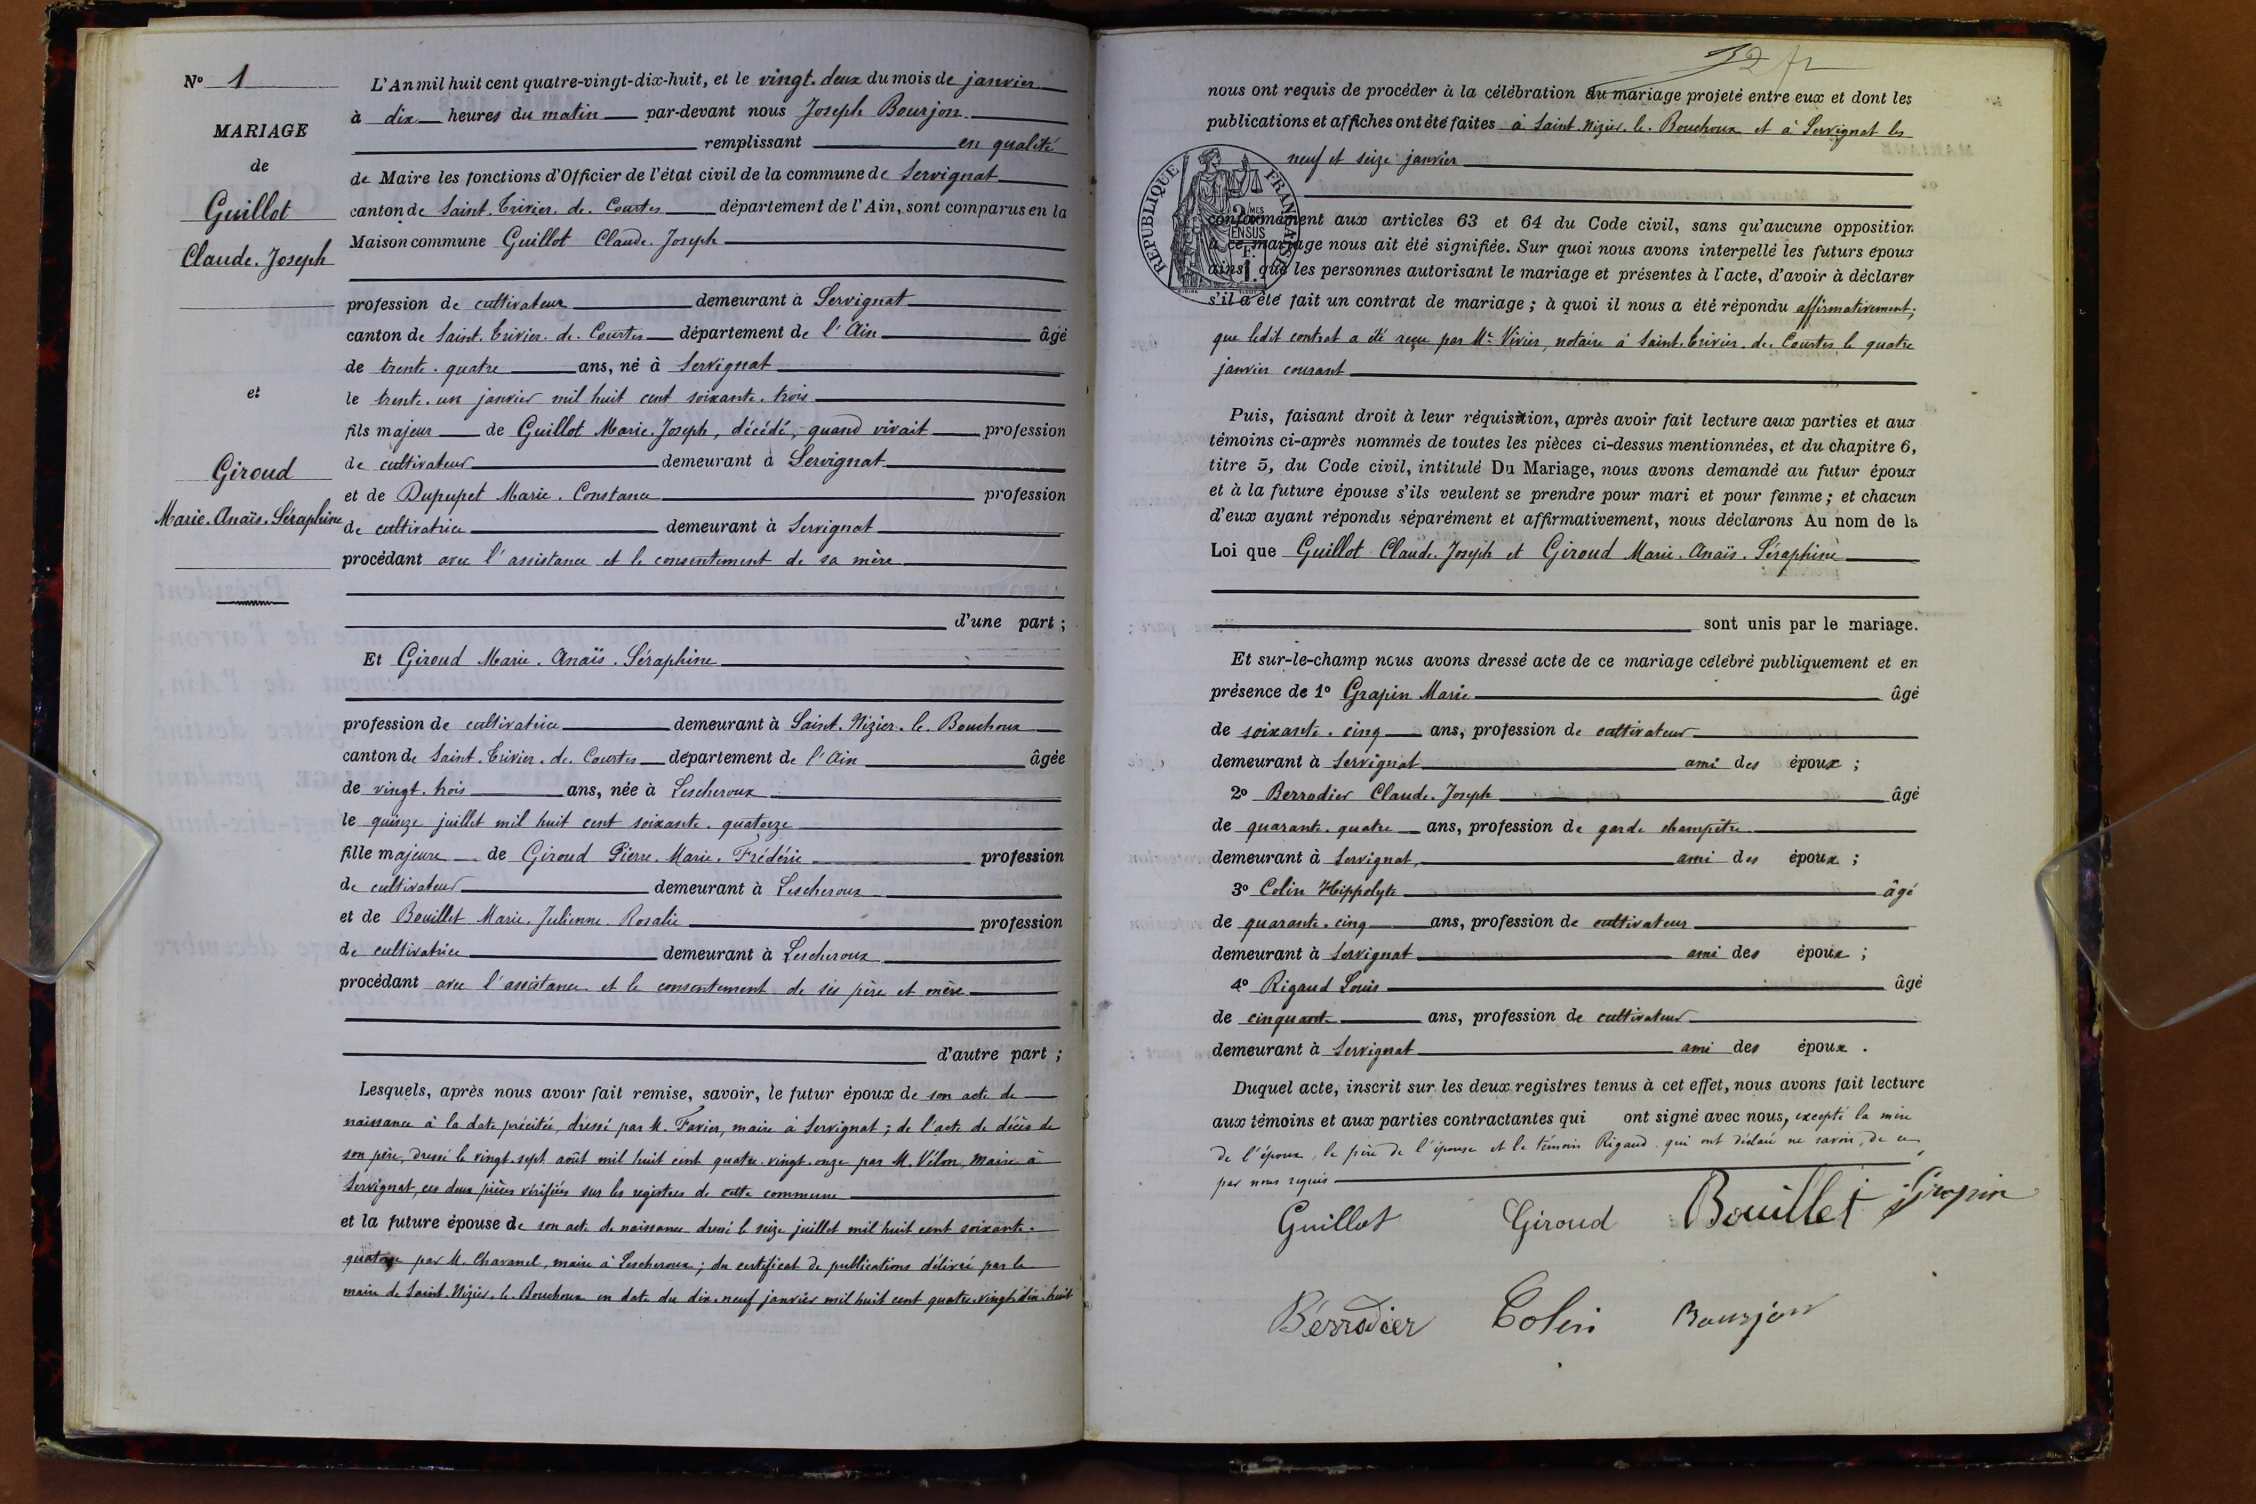 Nº 1
MARIAGE
de
Guillot
Claude-Joseph
et
Giroud
Marie-Anaïs-Séraphine
L'An mil huit cent quatre-vingt-dix-huit, et le vingt-deux du mois de janvier
à dix heures du matin par-devant nous Joseph Bourjon
remplissant en qualité
de Maire les fonctions d'Officier de l'état civil de la commune de Servignat
canton de Saint-Trivier-de-Courtes département de l'Ain, sont comparus en la
Maison commune Guillot Claude-Joseph
profession de cultivateur demeurant à Servignat
canton de Saint-Trivier-de-Courtes département de l'Ain âgé
de trente-quatre ans, né à Servignat
le trente-un janvier mil huit cent soixante-trois
fils majeur de Guillot Marie-Joseph, décédé, quand vivait profession
de cultivateur demeurant à Servignat
et de Dupupet Marie-Constance profession
de cultivatrice demeurant à Servignat
procédant avec l'assistance et le consentement de sa mère
d'une part ;
Et Giroud Marie-Anaïs-Séraphine
profession de cultivatrice demeurant à Saint-Nizier-le-Bouchoux
canton de Saint-Trivier-de-Courtes département de l'Ain âgée
de vingt-trois ans, née à Lescheroux
le quinze juillet mil huit cent soixante-quatorze
fille majeure de Giroud Pierre-Marie-Frédéric profession
de cultivateur demeurant à Lescheroux
et de Bouillet Marie-Julienne-Rosalie profession
de cultivatrice demeurant à Lescheroux
procédant avec l'assistance et le consentement de ses père et mère
d'autre part ;
Lesquels, après nous avoir fait remise, savoir, le futur époux de son acte de
naissance à la date précitée, dressé par M. Favier, maire à Servignat ; de l'acte de décès de
son père, dressé le vingt-sept août mil huit cent quatre-vingt-onze par M. Vélon, maire à
Servignat, ces deux pièces vérifiées sur les registres de cette commune
et la future épouse de son acte de naissance dressé le seize juillet mil huit cent soixante-
quatorze par M. Chavanel, maire à Lescheroux ; du certificat de publications délivré par le
maire de Saint-Nizier-le-Bouchoux en date du dix-neuf janvier mil huit cent quatre-vingt-dix-huit
nous ont requis de procéder à la célébration du mariage projeté entre eux et dont les
publications et affiches ont été faites à Saint-Nizier-le-Bouchoux et à Servignat les
neuf et seize janvier
RÉPUBLIQUE FRANÇAISE
conformément aux articles 63 et 64 du Code civil, sans qu'aucune opposition
à ce mariage nous ait été signifiée. Sur quoi nous avons interpellé les futurs époux
ainsi que les personnes autorisant le mariage et présentes à l'acte, d'avoir à déclarer
s'il a été fait un contrat de mariage ; à quoi il nous a été répondu affirmativement,
que ledit contrat a été reçu par Me Vivier, notaire à Saint-Trivier-de-Courtes le quatre
janvier courant
Puis, faisant droit à leur réquisition, après avoir fait lecture aux parties et aux
témoins ci-après nommés de toutes les pièces ci-dessus mentionnées, et du chapitre 6,
titre 5, du Code civil, intitulé Du Mariage, nous avons demandé au futur époux
et à la future épouse s'ils veulent se prendre pour mari et pour femme ; et chacun
d'eux ayant répondu séparément et affirmativement, nous déclarons Au nom de la
Loi que Guillot Claude-Joseph et Giroud Marie-Anaïs-Séraphine
sont unis par le mariage.
Et sur-le-champ nous avons dressé acte de ce mariage célébré publiquement et en
présence de 1º Grapin Marie âgé
de soixante-cinq ans, profession de cultivateur
demeurant à Servignat ami des époux ;
2º Berrodier Claude-Joseph âgé
de quarante-quatre ans, profession de garde champêtre
demeurant à Servignat, ami des époux ;
3º Colin Hippolyte âgé
de quarante-cinq ans, profession de cultivateur
demeurant à Servignat ami des époux ;
4º Rigaud Louis âgé
de cinquante ans, profession de cultivateur
demeurant à Servignat ami des époux.
Duquel acte, inscrit sur les deux registres tenus à cet effet, nous avons fait lecture
aux témoins et aux parties contractantes qui ont signé avec nous, excepté la mère
de l'époux, le père de l'épouse et le témoin Rigaud qui ont déclaré ne savoir, de ce
par nous requis
Guillot Giroud Bouillet Grapin
Bérrodier Colin Bourjon